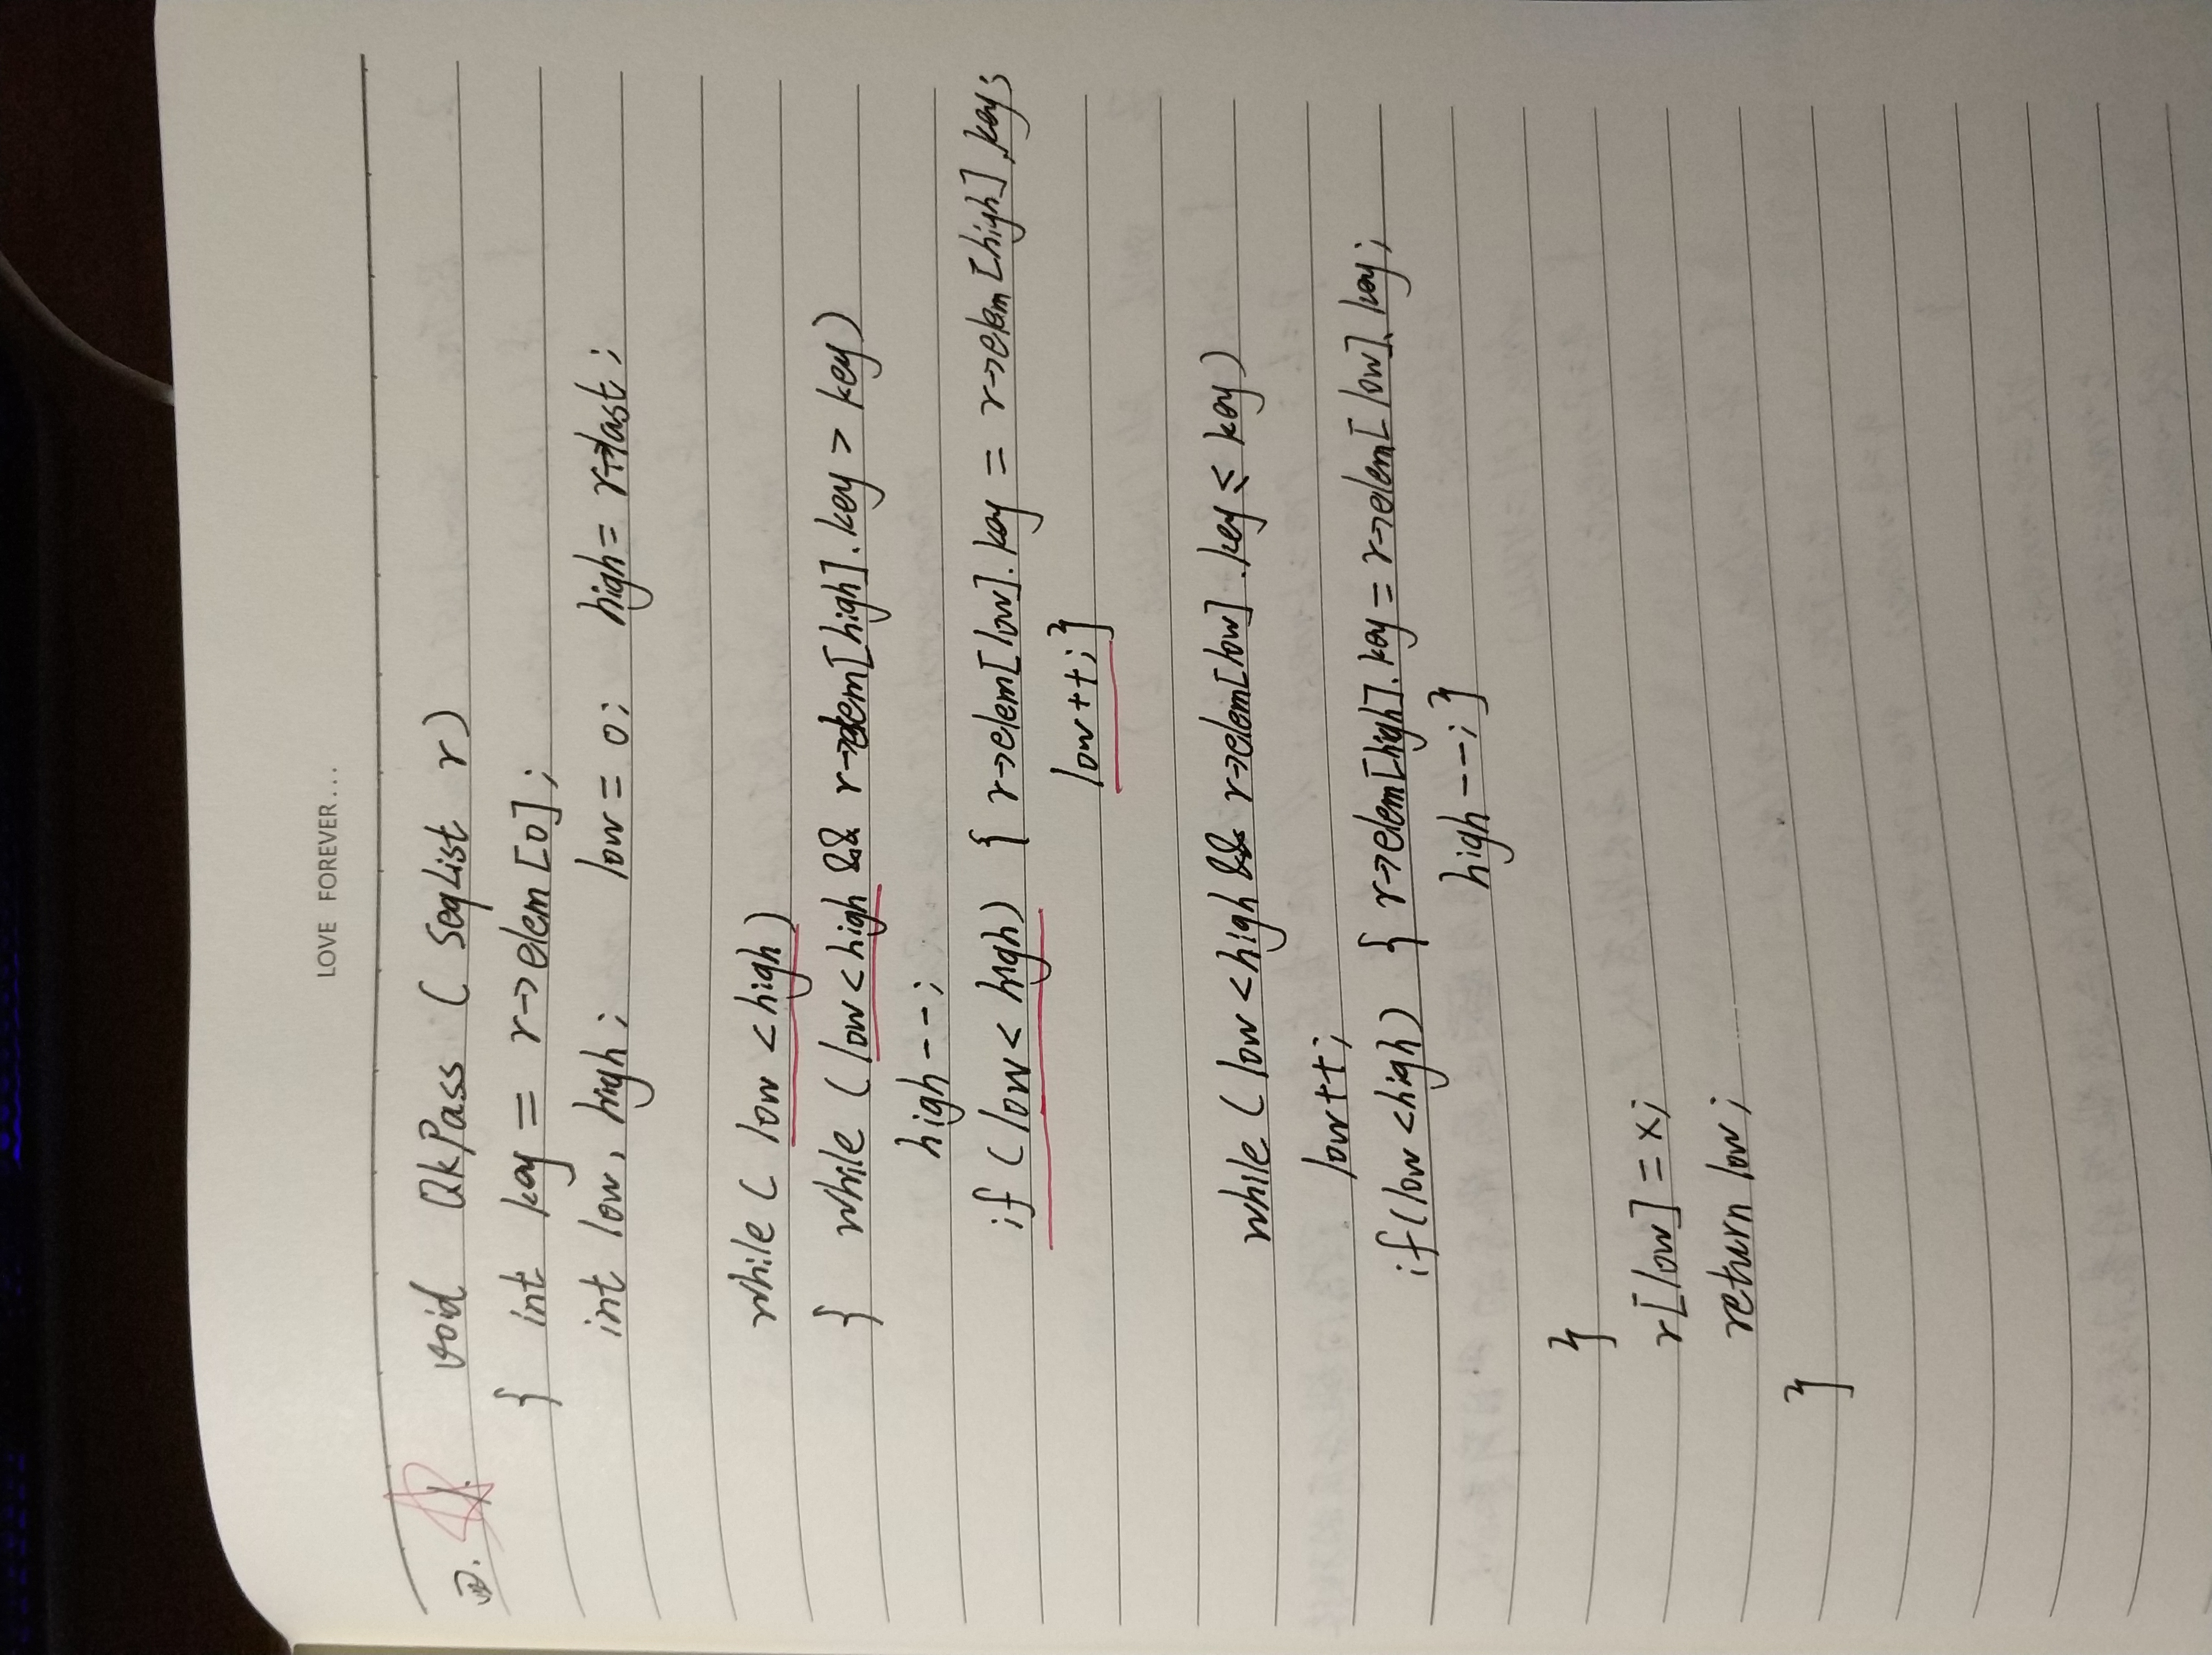 LOVE FOREVER...
四. 1. void QkPass ( SeqList r )
{ int key = r→elem [0] ;
int low, high ; low = 0 ; high = r→last ;
while ( low < high )
{ while ( low < high && r→elem[high]. key > key )
high-- ;
if ( low < high ) { r→elem[low]. key = r→elem [high] .key ;
low++ ; }
while ( low < high && r→elem[low] . key ≤ key )
low++ ;
if (low < high) { r→elem[high]. key = r→elem[ low]. key ;
high-- ; }
}
r[low] = x ;
return low ;
}